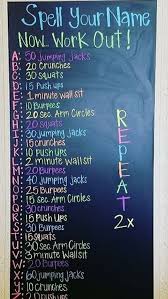 Spell Your Name
Now Work Out!
A: 50 jumping jacks
B: 20 crunches
C: 30 squats
D: 15 Push ups
E: 1 minute Wall sit
F: 10 Burpees
G: 20 sec. Arm Circles
H: 20 squats
I: 30 jumping Jacks
J: 15 crunches
K: 10 push ups
L: 2 minute wall sit
M: 20 Burpees
N: 40 jumping jacks
O: 25 Burpees
P: 15 sec Arm Circles
Q: 30 crunches
R: 15 Push ups
S: 30 Burpees
T: 15 squats
U: 30 sec Arm Circles
V: 3 minute Wall sit
W: 20 Burpees
X: 60 jumping jacks
Y: 10 crunches
Z: 20 Push Ups
REPEAT
2x